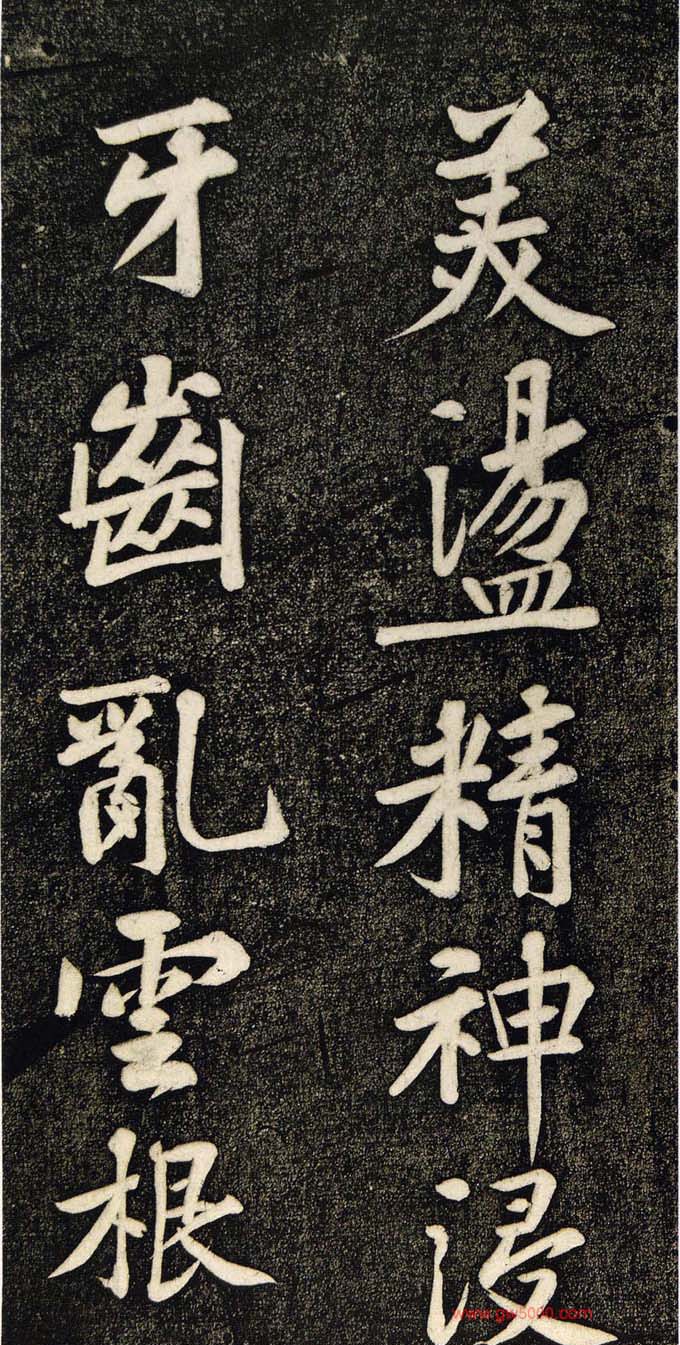 美盪精神浸
牙齒亂雲根
www.gw5000.com